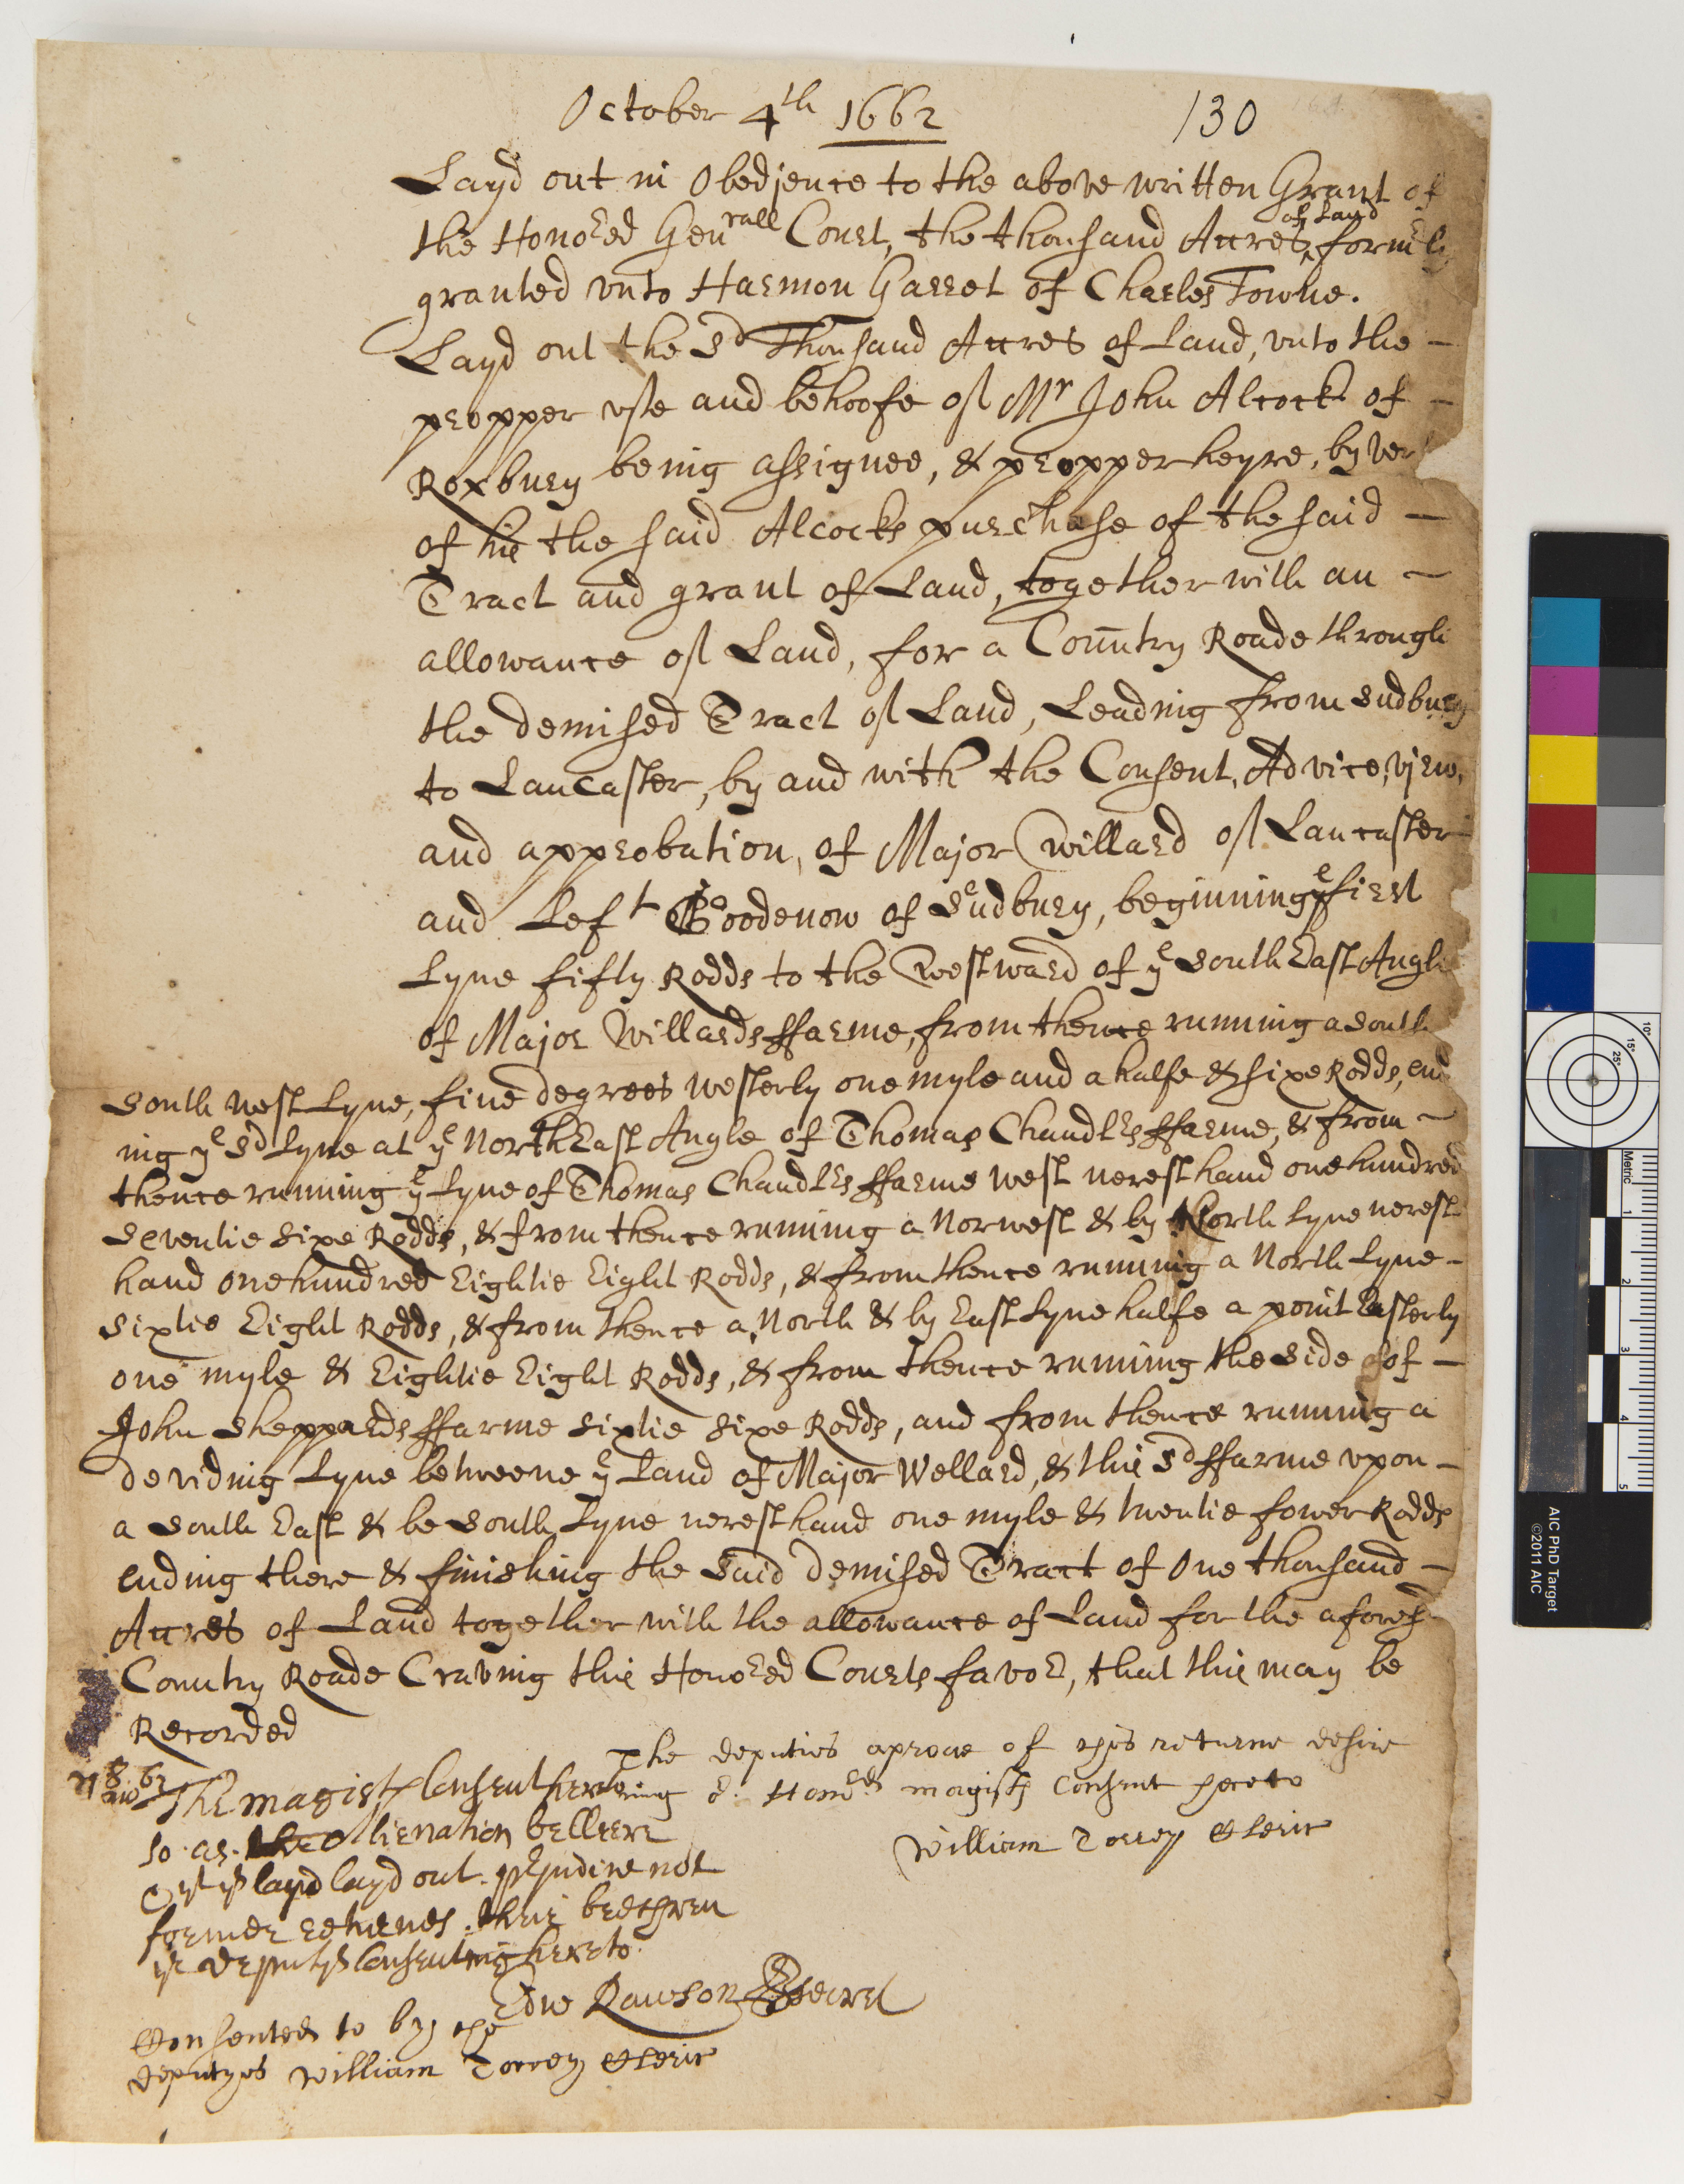 October 4th 1662
130
Layd out in Obedjence to the above written Grant of
the Honored Genrall Court, the thousand Acres of Land, formerly
granted vnto Harmon Garret of Charles Towne.
Layd out the sd Thousand Acres of Land, vnto the -
propper vse and behoofe of Mr John Alcock of -
Roxbury being assignee, & propper heyre, by
of his the said Alcocks purchase of the said -
Tract and grant of Land, together with an -
allowance of Land, for a Country Roade through
the demised Tract of Land, Leading from Sudbury
to Lancaster, by and with the Consent, Advice, vjew,
and approbation, of Major Willard of Lancaster
and Left Goodenow of Sudbury, beginning ye first
Lyne fifty Rodds to the Westward of ye South East Angle
of Major Willards ffarme, from thence running a South
South West Lyne, five degrees Westerly one myle and a halfe & sixe Rodds, end
ing ye sd Lyne at ye North East Angle of Thomas Chandlrs ffarme, & from -
thence running ye Lyne of Thomas Chandlrs ffarme West nerest hand one hundred
Seventie sixe Rodds, & from thence running a Norwest & by North Lyne nerest
hand one hundred Eightie Eight Rodds, & from thence running a North Lyne -
Sixtie Eight Rodds, & from thence a North & by East Lyne halfe a point Easterly
one myle & Eightie Eight Rodds, & from thence running the side of -
John Sheppards ffarme sixtie sixe Rodds, and from thence running a
deviding Lyne betweene ye Land of Major Wellard, & this sd ffarme vpon -
a South East & be South Lyne nerest hand one myle & twentie fower Rodds
ending there & finishing the said demised Tract of one thousand -
Acres of Land together with the allowance of Land for the aforesd
Country Roade Craving this Honored Courts favor, that this may be
Recorded
The deputies aproue of this returne desire
ing or Honrd magists Consent hereto
William Torrey Cleric
The magists Consent hereto
so as
layd out prejudice not
former their brethren
ye deputys Consenting hereto.
Edw Rawson Secret
Consented to by the
deputyes William Torrey Cleric
AIC PhD Target
©2011 AIC
Metric
1
2
3
4
5
10°
15°
25°